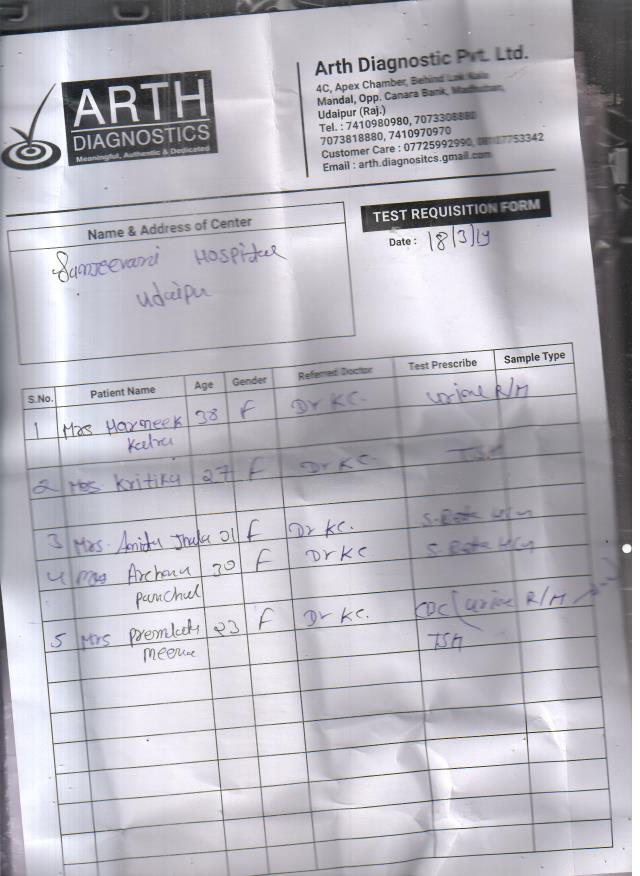 ARTH
DIAGNOSTICS
Meaningful, Authentic & Dedicated
Arth Diagnostic Pvt. Ltd.
4C, Apex Chamber, Behind Lok Kala
Mandal, Opp. Canara Bank, Madhuban,
Udaipur (Raj.)
Tel. : 7410980980, 7073308880
7073818880, 7410970970
Customer Care : 07725992990,
Email : arth.diagnositcs.gmail.com
Name & Address of Center
Sanjeevani Hospital
Udaipur
TEST REQUISITION FORM
Date : 18/3/19
S.No. Patient Name Age Gender Referred Doctor Test Prescribe Sample Type
1 Mrs Harmeek 38 F Dr KC. Urine R/M
Kalra
2 Mrs. Kritika 27 F Dr KC. TSH
3 Mrs. Jhala F Dr KC. S. Beta HCG
4 Mrs Archana 30 F Dr KC S. Beta HCG
Panchal
5 Mrs Premlata 23 F Dr KC. CBC Urine R/M
Meena TSH